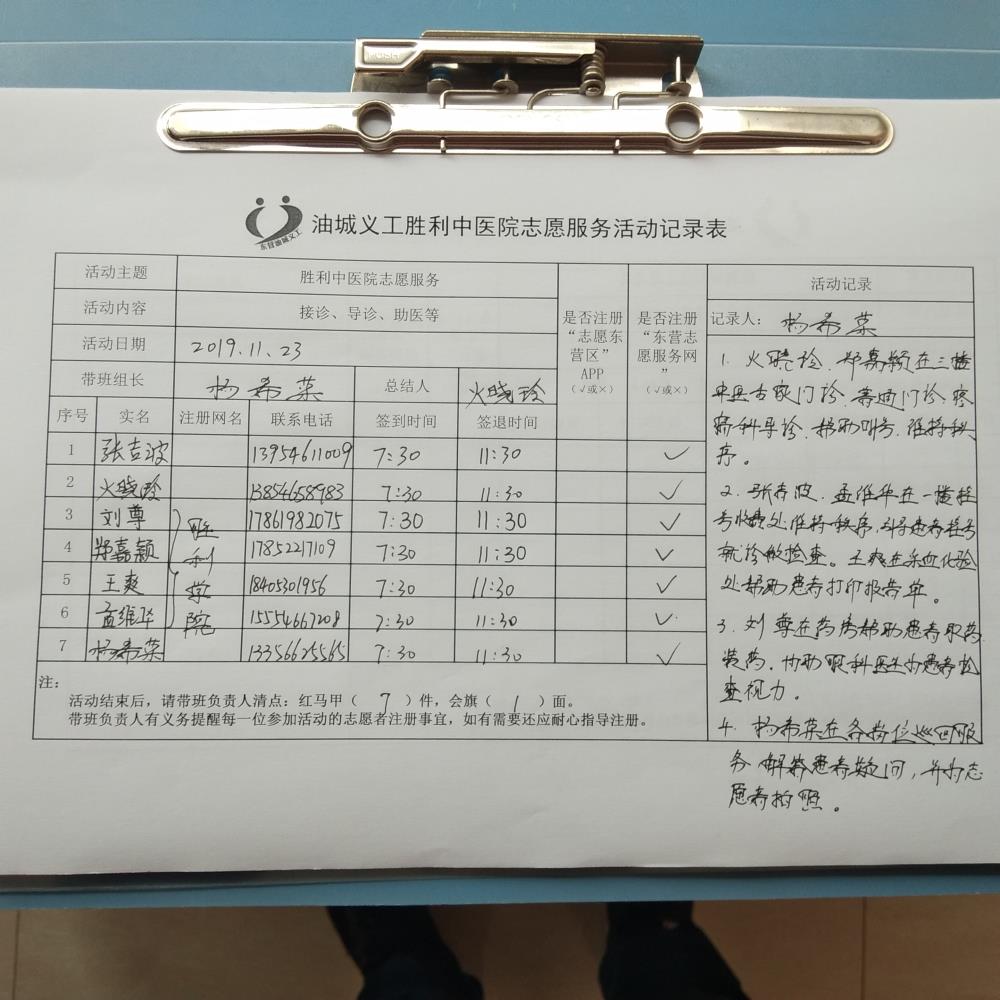 东营油城义工
油城义工胜利中医院志愿服务活动记录表
活动主题 胜利中医院志愿服务
活动内容 接诊、导诊、助医等
活动日期 2019.11.23
带班组长 杨希菜 总结人 火晓玲
是否注册“志愿东营区”APP（√或×）
是否注册“东营志愿服务网”（√或×）
序号 实名 注册网名 联系电话 签到时间 签退时间
1 张吉波 13954611009 7:30 11:30 ✓
2 火晓玲 13854658983 7:30 11:30 ✓
3 刘尊 17861982075 7:30 11:30 ✓
4 郑嘉颖 17852217109 7:30 11:30 ✓
5 王爽 18405301956 7:30 11:30 ✓
6 孟维华 15554667208 7:30 11:30 ✓
7 杨希菜 13356625565 7:30 11:30 ✓
胜利学院
注：
活动结束后，请带班负责人清点：红马甲（ 7 ）件，会旗（ 1 ）面。
带班负责人有义务提醒每一位参加活动的志愿者注册事宜，如有需要还应耐心指导注册。
活动记录
记录人：杨希菜
1. 火晓玲、郑嘉颖在三楼
门诊、普通门诊
科导诊、帮助叫号、维持秩
序。
2. 孟维华在一楼挂
号收费处维持秩序，引导患者挂号
就诊做检查。王爽在采血化验
处帮助患者打印报告单。
3. 刘尊在药房帮助患者取药
装药，协助眼科医生为患者检
查视力。
4. 杨希菜在各岗位巡回服
务解答患者疑问，并为志
愿者拍照。